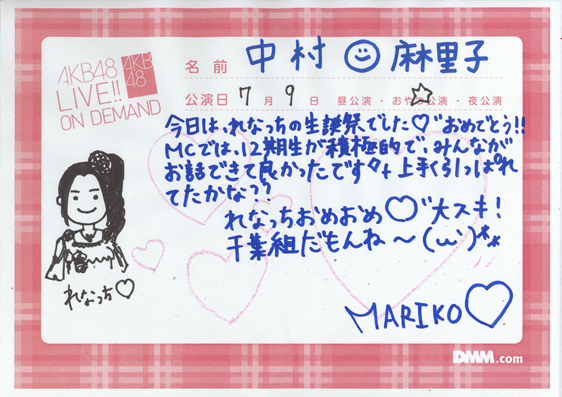 AKB48
LIVE!!
ON DEMAND
AKB
48
名前 中村 麻里子
公演日 7月9日 昼公演・おやつ公演・夜公演
今日は、れなっちの生誕祭でした♡"おめでとう!!
MCでは、12期生が積極的で、みんなが
お話できて良かったです 上手く引っぱれ
てたかな??
れなっちおめおめ♡"大スキ!
千葉組だもんね〜(ω')
れなっち♡
MARIKO♡
DMM.com